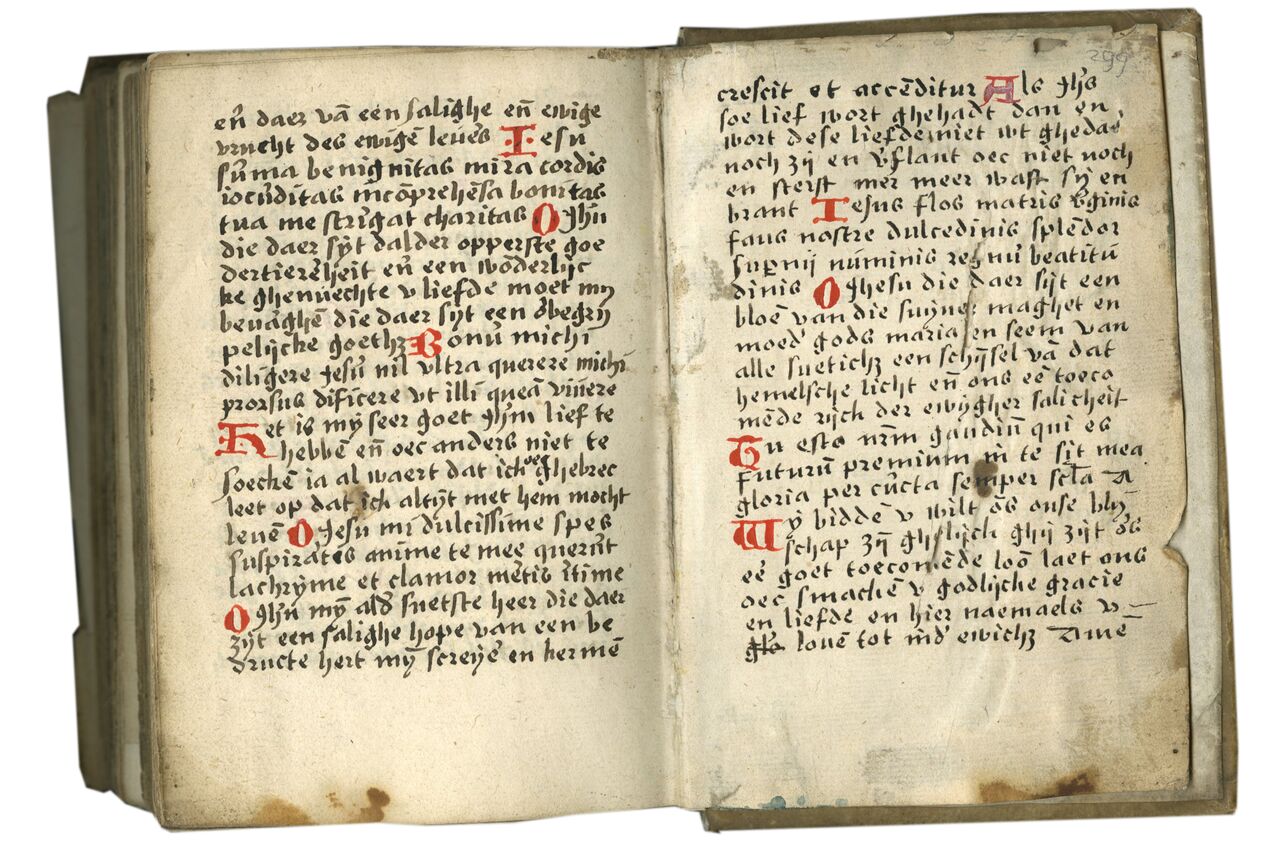 en̄ daer vā een salighe en̄ ewige
vrucht des ewigē leuēs Iesu
sūma benignitas mira cordis
iocūditas īncōprehēsa bonitas
tua me strīgat charitas O Jhū
die daer sijt dalder opperste goe
dertierēheit en̄ een wōderlijc
ke ghenuechte v liefde moet my
beuāghē die daer sijt een ōbegrij
pelijcke goethz Bonū michi
diligere Jesū nil vltra querere michi
prorsus dificere vt illi queā viuere
Het is mȳ seer goet Jhm̄ lief te
hebbē en̄ oec anders niet te
soeckē ia al waert dat ich oec ghebrec
leet op dat ich altijt met hem mocht
leuē O Jesu mi dulcissime spes
suspirātes anime te mee querūt
lachryme et clamor mētis ītime
O Jhū mȳ ald' suetste heer die daer
zijt een salighe hope van een be
dructe hert mȳ screyē en kermē
299
crescit et accēditur Als Jhs
soe lief wort ghehadt dan en
wort dese liefde niet wt ghedaē
noch zij en v'flaut oec niet noch
en sterft mer meer wast sij en
brant Iesus flos matris v'ginis
fauus nostre dulcedinis splēdor
sup̄nij nūminis regnū beatitu
dinis O Jhesu die daer sijt een
bloē van die suyuer maghet en
moed' gods maria en seem van
alle suetichz een schijnsel vā dat
hemelsche licht en̄ ons eē toeco
mēde rijch der ewygher salicheit
Tu esto nrm̄ gaudiū qui es
futurū premium in te sit mea
gloria per cūcta semper scl̄a A
Wy biddē v wilt ōs onse blij
schap zijn ghelijch ghij zijt ōs
eē goet toecomēde loō laet ons
oec smachē v godlijche gracie
en liefde en hier naemaels v
glo louē tot īnd' ewichz Amē